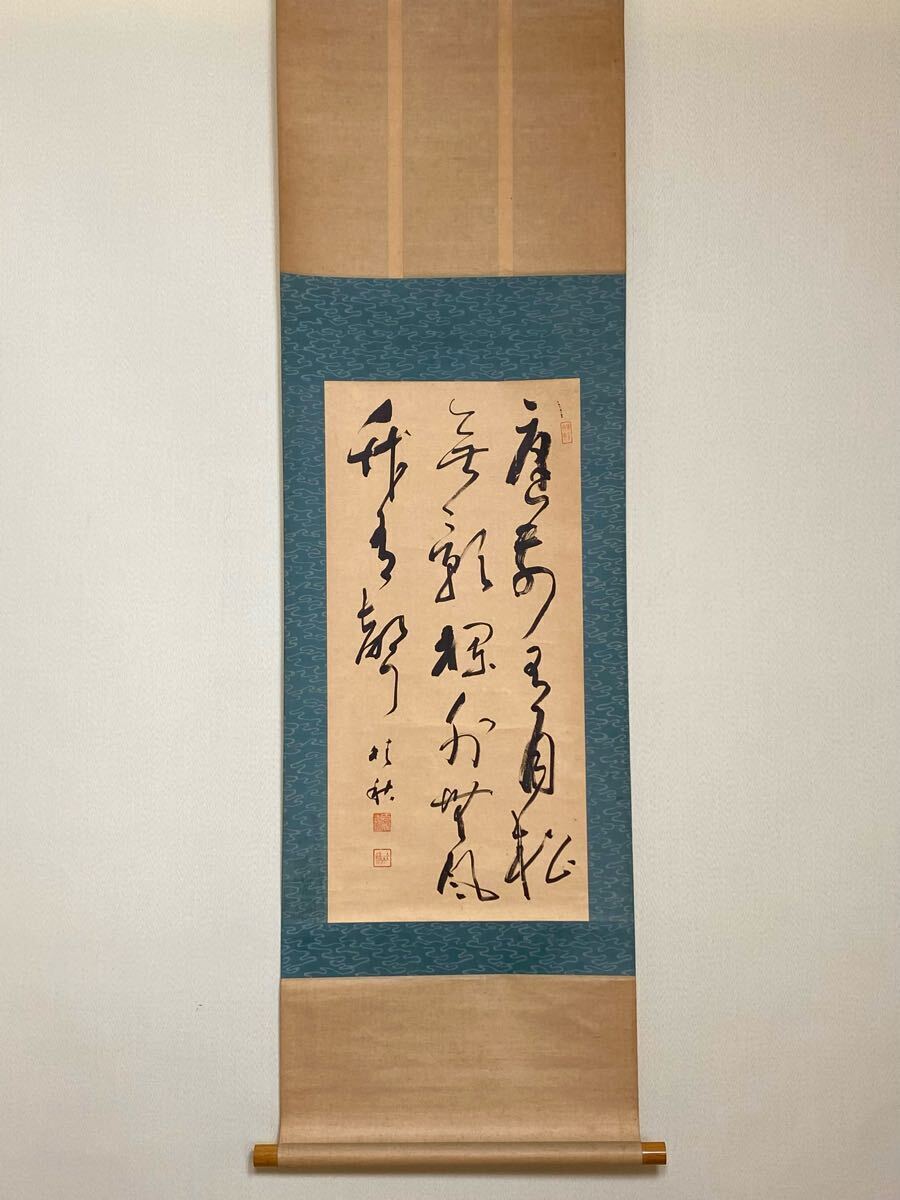 庭前有月松
無影欄外無風
竹有聲